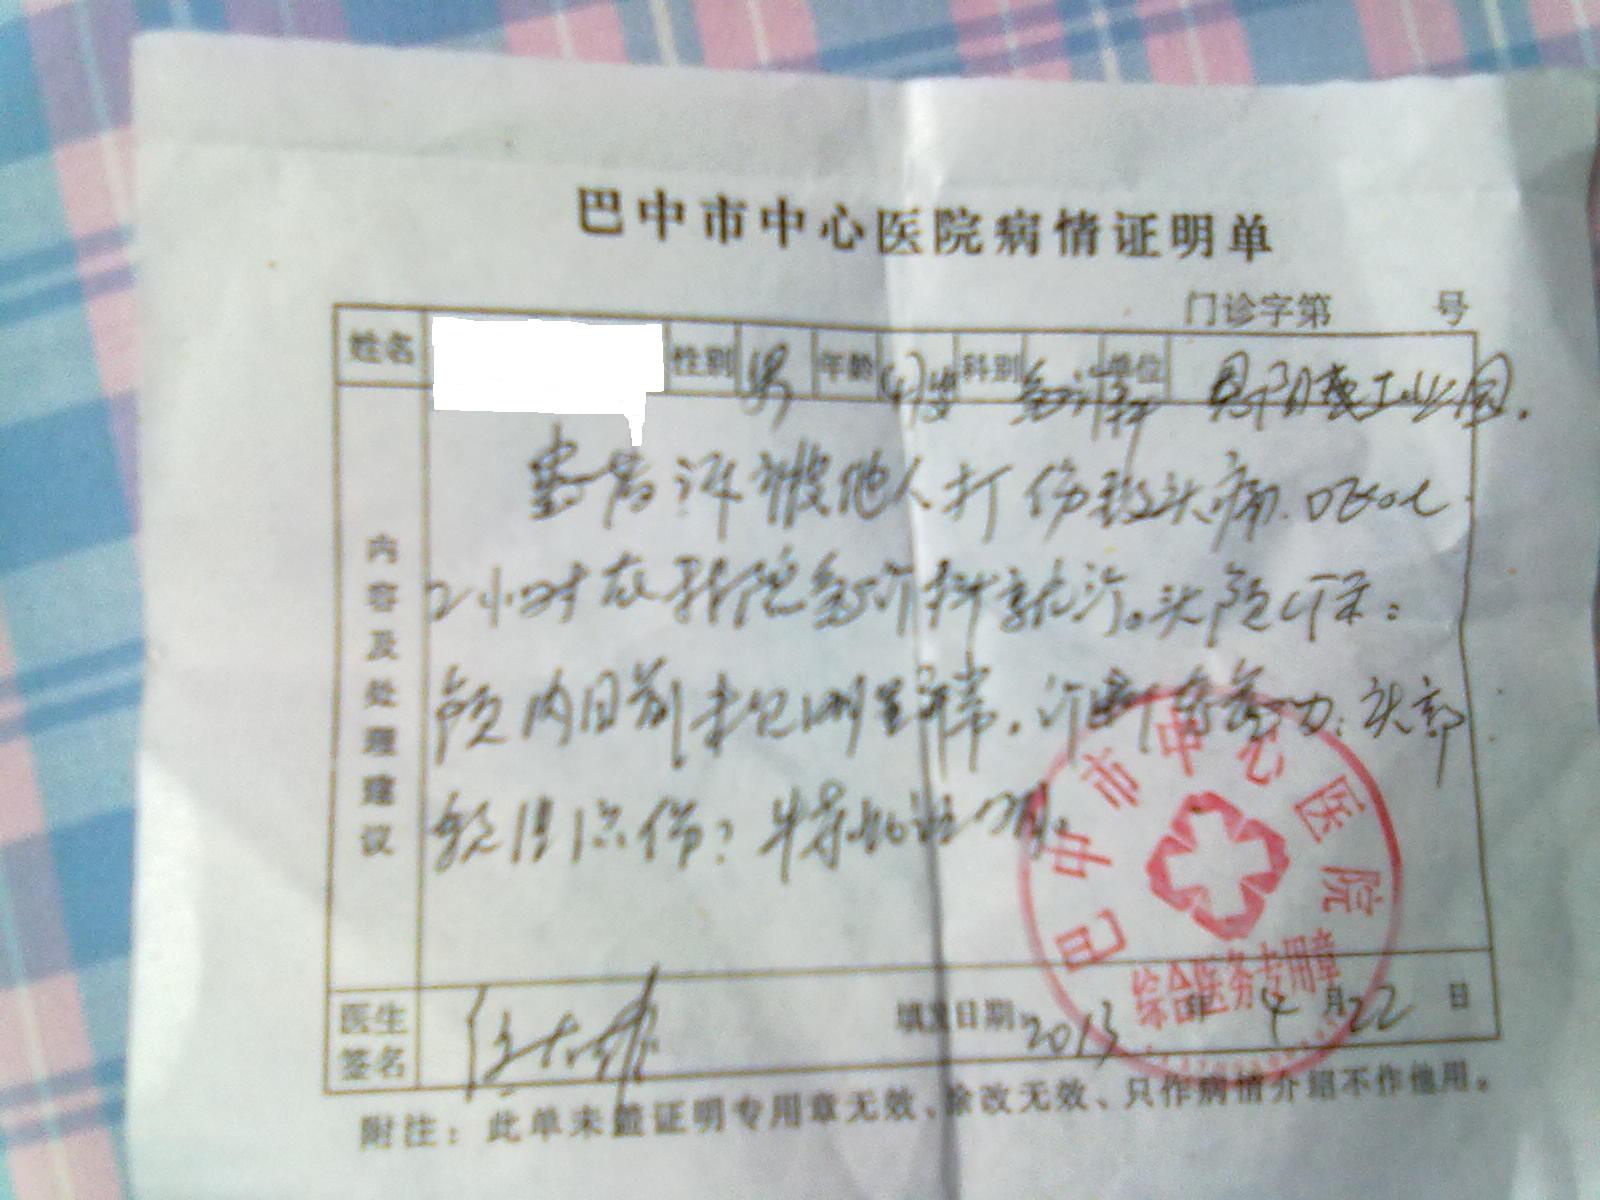 巴中市中心医院病情证明单
门诊字第 号
姓名 性别 男 年龄 岁 科别 急诊科 单位 工业园.
内容及处理建议
患者诉被他人打伤致头痛.
2小时在我院急诊科就诊。头颅CT示:
颅内目前未见明显异常. 诊断 头部
软组织伤; 特此证明.
医生签名
填发日期: 2013年4月22日
巴中市中心医院
综合医务专用章
附注: 此单未盖证明专用章无效、涂改无效、只作病情介绍不作他用。